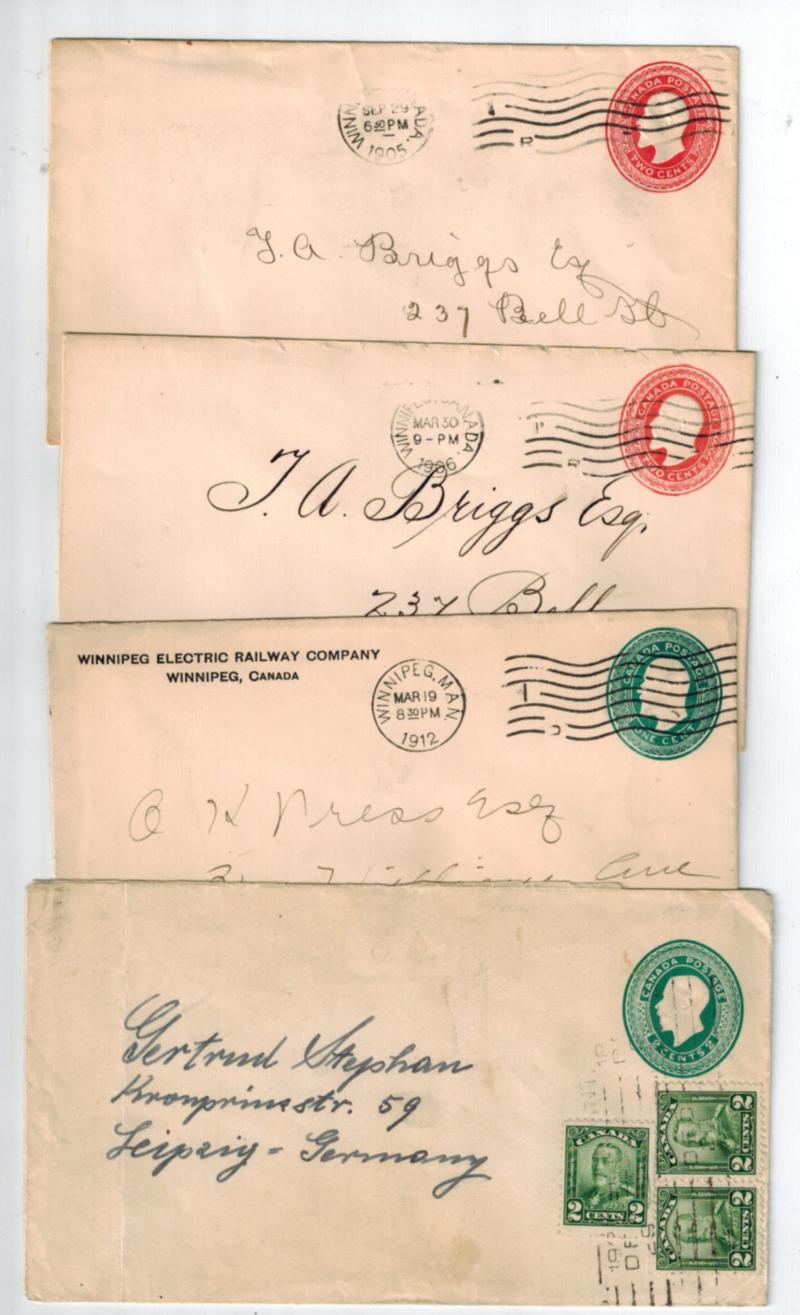 SEP 29
6 30 PM
WINN ADA.
1905
CANADA POSTAGE
TWO CENTS
T. A. Briggs Esq
237 Bell St
WINNIPEG, CANADA.
MAR 30
9 - PM
1906
CANADA POSTAGE
TWO CENTS
T. A. Briggs Esq.
237 Bell
WINNIPEG ELECTRIC RAILWAY COMPANY
WINNIPEG, CANADA
WINNIPEG, MAN.
MAR 19
8 30 PM
1912
CANADA POSTAGE
ONE CENT
O K Press Esq
Ave
CANADA POSTAGE
2 CENTS 2
Gertrud Stephan
Kronprinzstr. 59
Leipzig - Germany
CANADA
2 CENTS
CANADA
2 CENTS
CANADA
2 CENTS